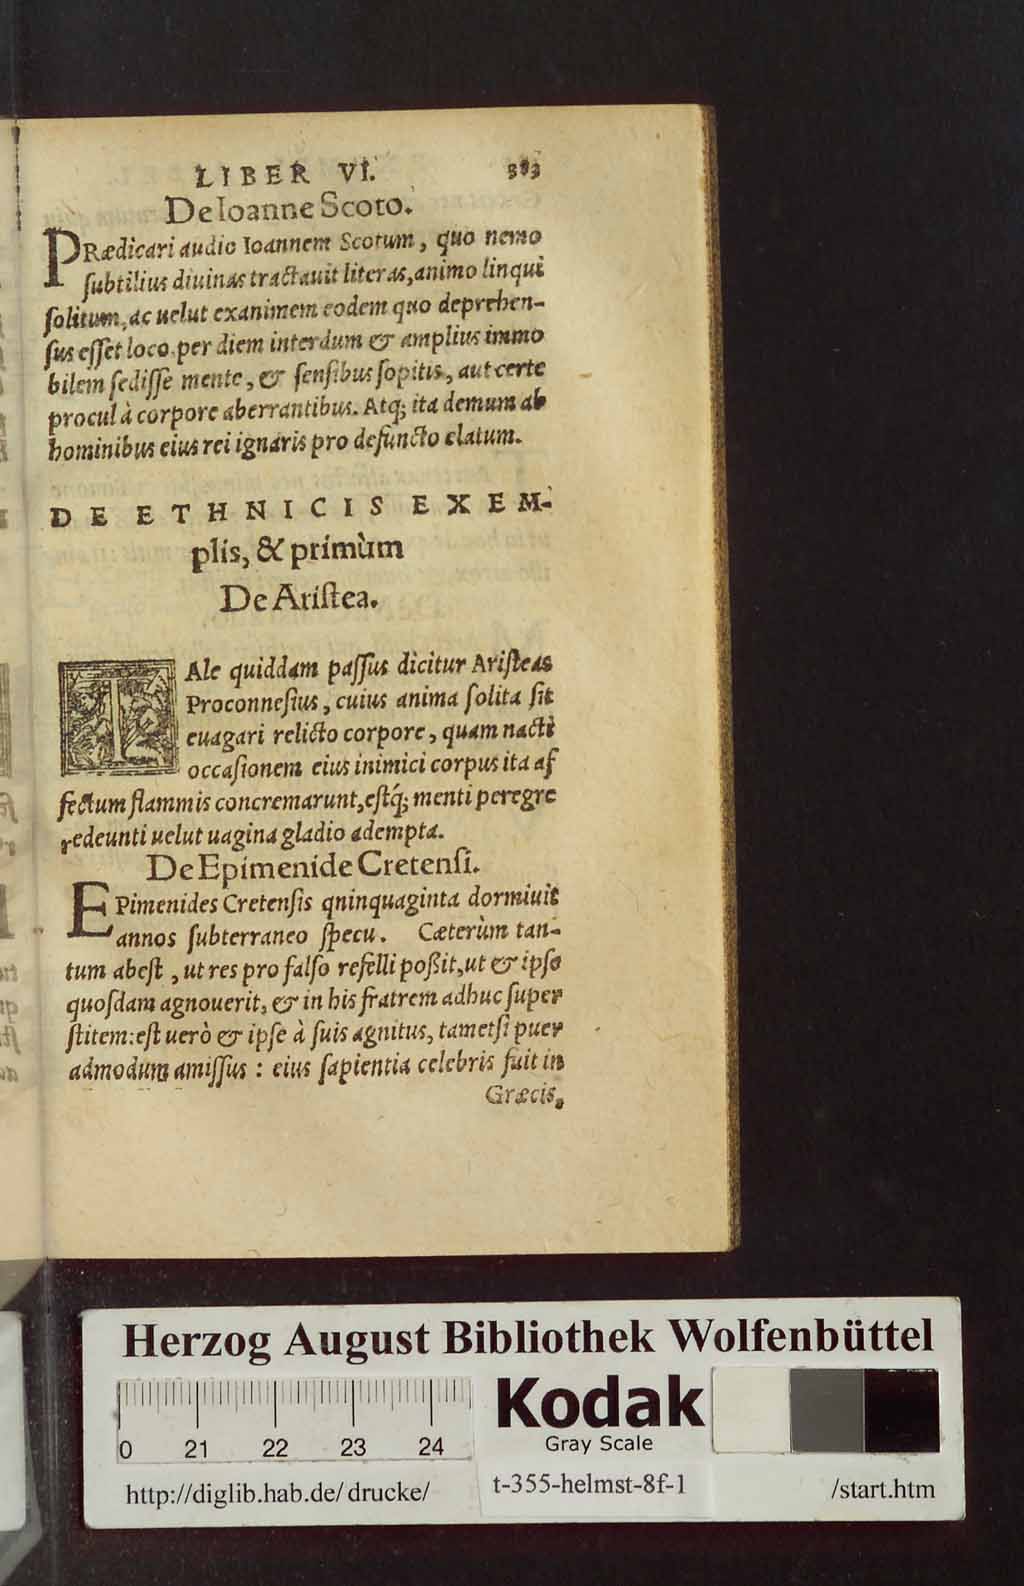 LIBER VI. 383
De Ioanne Scoto.
PRædicari audio Ioannem Scotum, quo nemo
ſubtilius diuinas tractauit literas, animo linqui
ſolitum, ac uelut exanimem eodem quo deprehen-
ſus eſſet loco, per diem interdum & amplius immo
bilem ſediſſe mente, & ſenſibus ſopitis, aut certe
procul à corpore aberrantibus. Atq; ita demum ab
hominibus eius rei ignaris pro defuncto elatum.
DE ETHNICIS EXEM-
plis, & primùm
De Ariſtea.
TAle quiddam paſſus dicitur Ariſteas
Proconneſius, cuius anima ſolita ſit
euagari relicto corpore, quam nacti
occaſionem eius inimici corpus ita af
fectum flammis concremarunt, eſtq́; menti peregre
redeunti uelut uagina gladio adempta.
De Epimenide Cretenſi.
EPimenides Cretenſis qninquaginta dormiuit
annos ſubterraneo ſpecu. Cæterùm tan-
tum abeſt, ut res pro falſo refelli poßit, ut & ipſe
quoſdam agnouerit, & in his fratrem adhuc ſuper
ſtitem: eſt uerò & ipſe à ſuis agnitus, tametſi puer
admodum amiſſus : eius ſapientia celebris fuit in
Græcis,
Herzog August Bibliothek Wolfenbüttel
0 21 22 23 24
Kodak
Gray Scale
http://diglib.hab.de/drucke/ t-355-helmst-8f-1 /start.htm